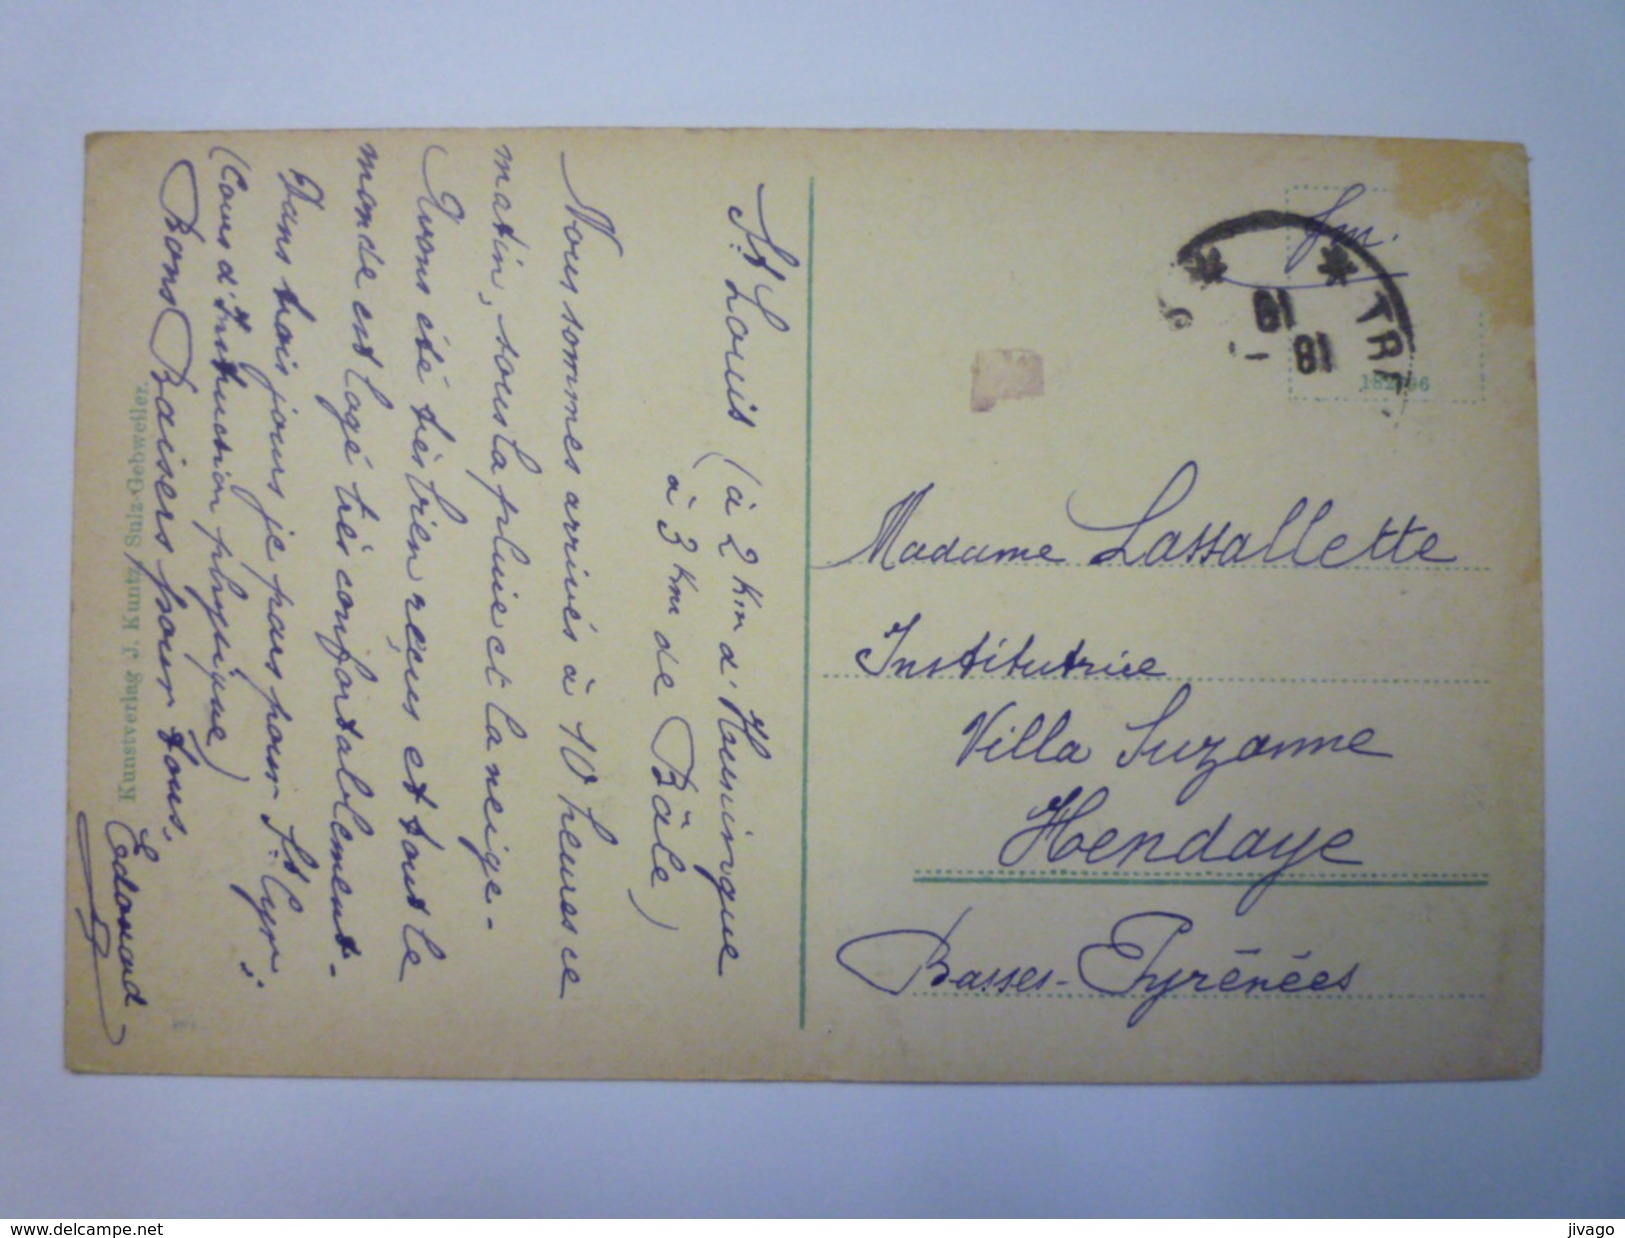 St Louis (à 2 Km d'Huningue
à 3 Km de Bâle)
Nous sommes arrivés à 10 heures ce
matin, sous la pluie et la neige -
Avons été très bien reçus et tout le
monde est logé très confortablement -
Dans trois jours je pars pour St Cyr
(Cours d'Instruction physique)
Bons Baisers pour tous,
Edouard
Kunstverlag J. Kuntz, Sulz-Gebweiler.
fm.
* * TRE
18
182
Madame Lassallette
Institutrice
Villa Suzanne
Hendaye
Basses-Pyrénées
delcampe.net
jivago